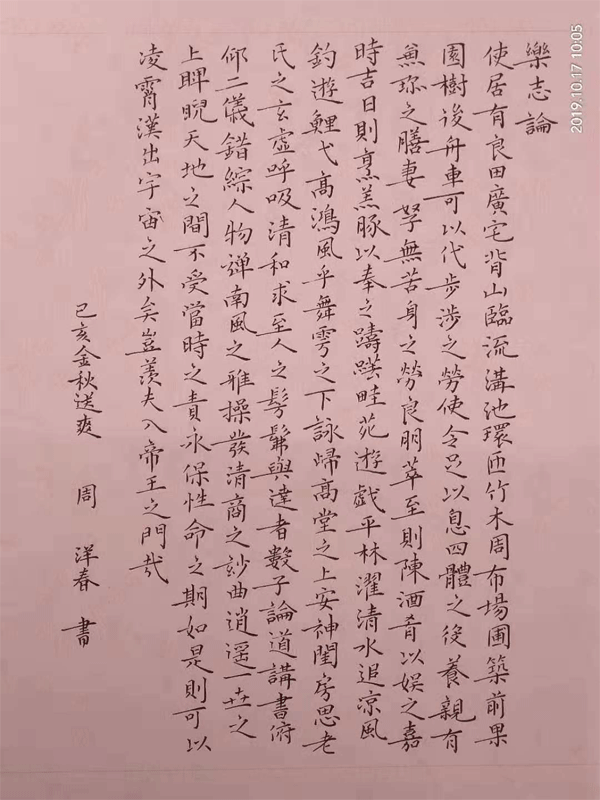 樂志論
使居有良田廣宅背山臨流溝池環匝竹木周布場圃築前果
園樹後舟車可以代步涉之勞使令足以息四體之後養親有
兼珍之膳妻孥無苦身之勞良朋萃至則陳酒肴以娛之嘉
時吉日則烹羔豚以奉之躊躇畦苑遊戲平林濯清水追涼風
釣遊鯉弋高鴻風乎舞雩之下詠歸高堂之上安神閨房思老
氏之玄虛呼吸清和求至人之髣髴與達者數子論道講書俯
仰二儀錯綜人物彈南風之雅操發清商之妙曲逍遥一世之
上睥睨天地之間不受當時之責永保性命之期如是則可以
凌霄漢出宇宙之外矣豈羨夫入帝王之門哉
己亥金秋送爽 周洋春 書
2019.10.17 10:05